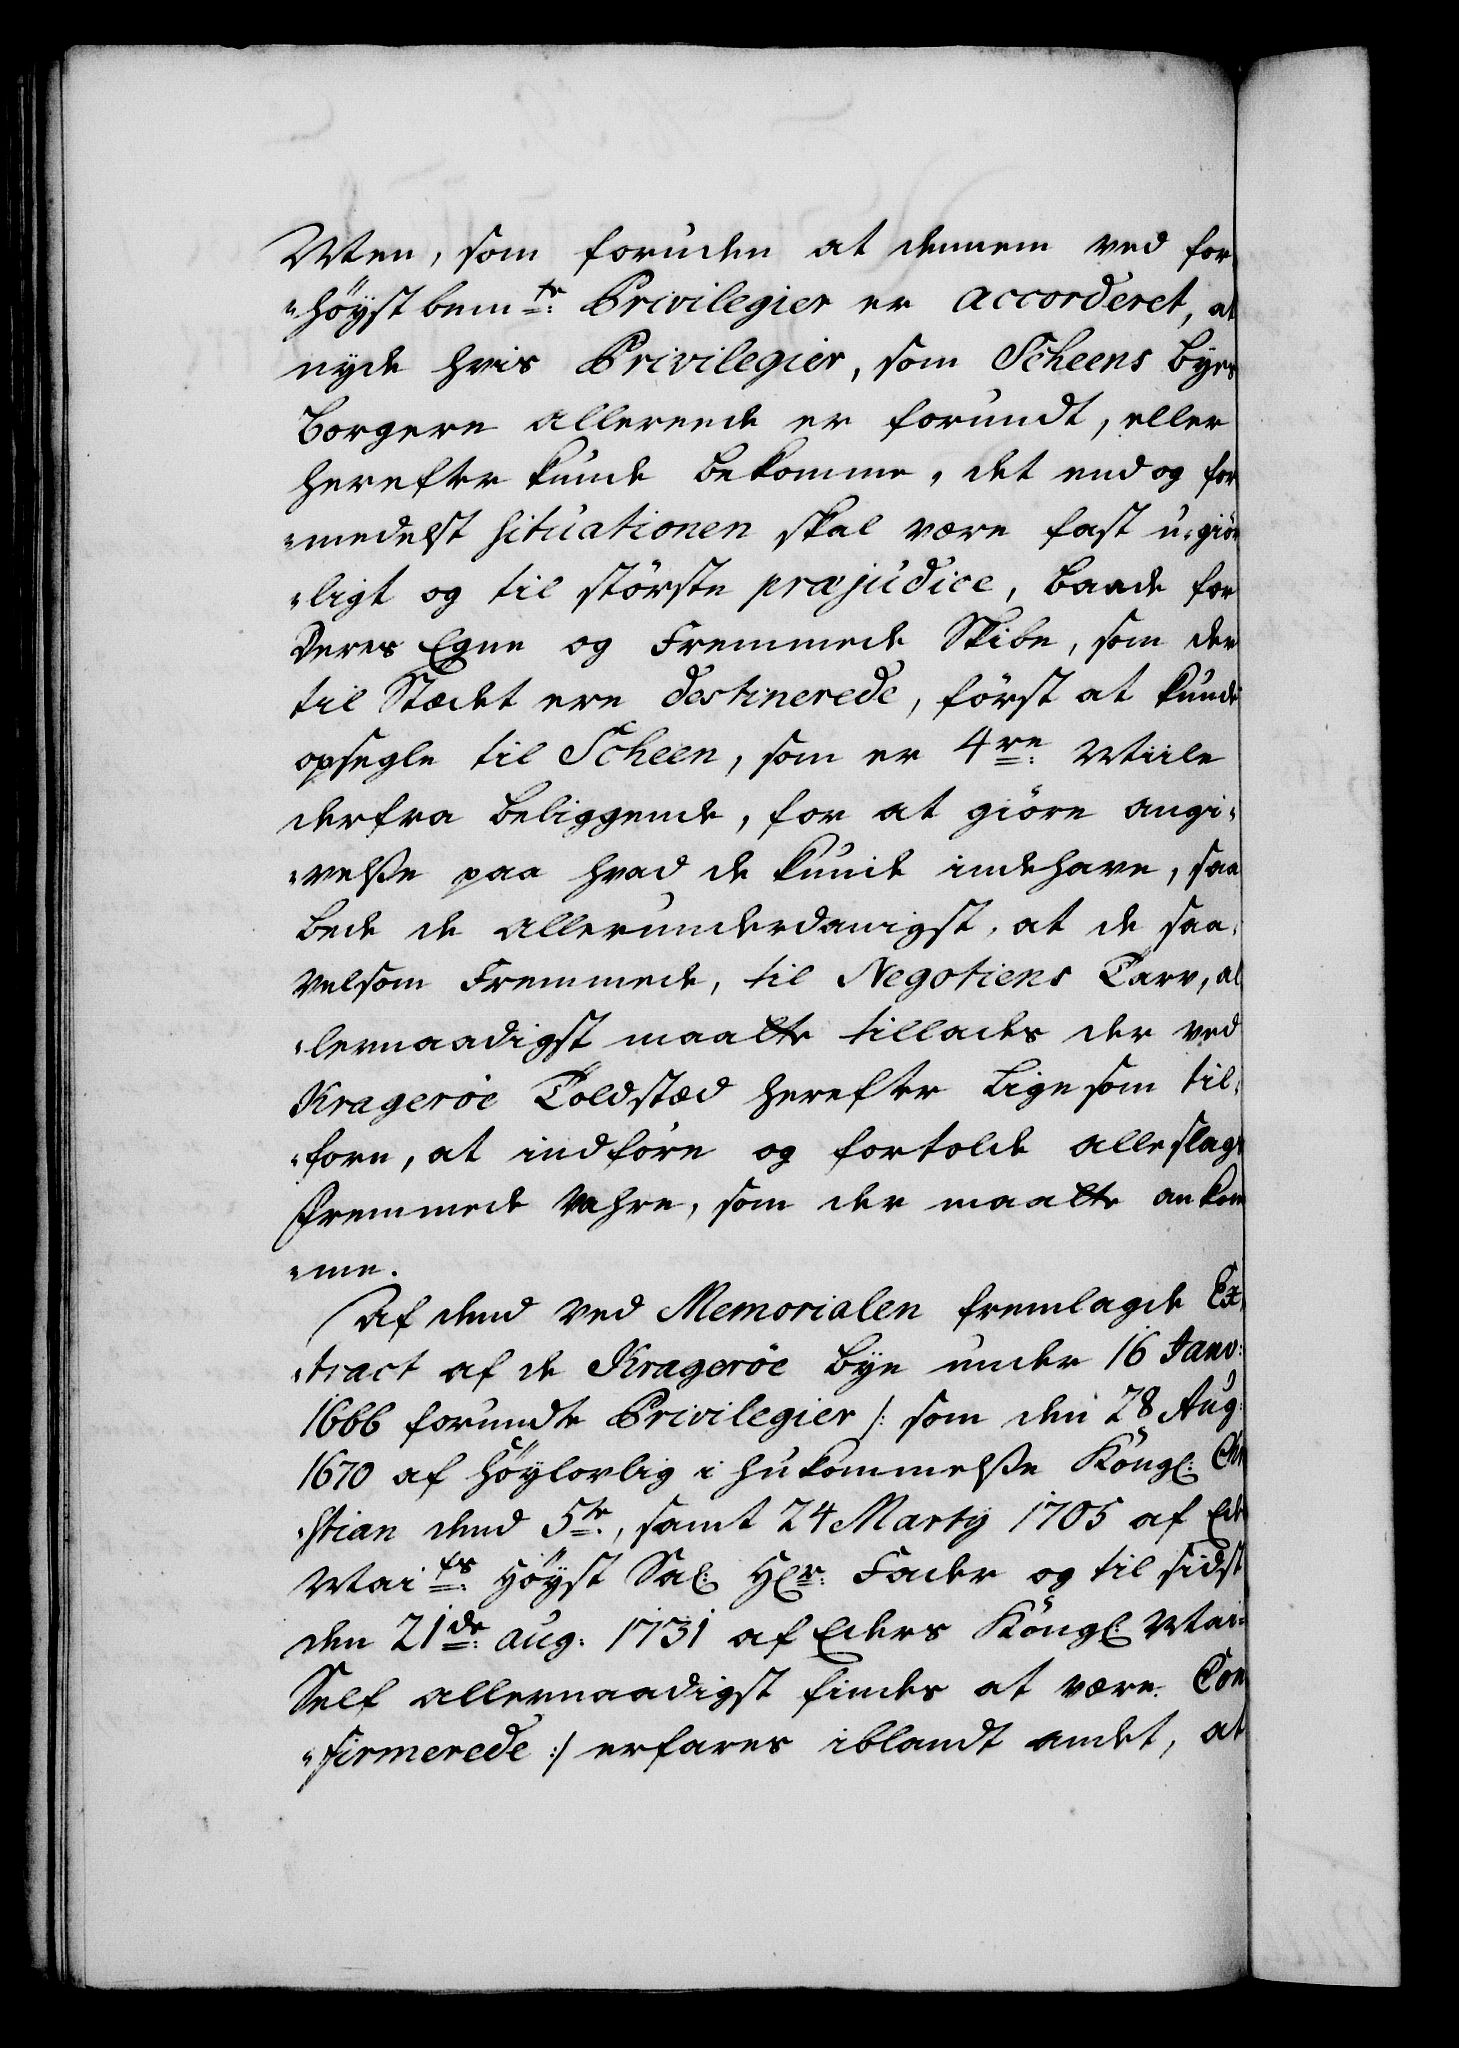 Men, som foruden at dennem ved for¬
"höystbem te: Privilegier er accorderet, at
nyde hvis Privilegier, som Scheens byes
Borgere allereede er forundt, eller
herefter kunde bekomme, det end og for
"medelst situationen skal være fast u-giör
"ligt og til störste præjudice, baade for
Deres Egne og Fremmede Skibe, som der
til Stædet ere destinerede, först at kunde
opsegle til Scheen, som er 4re: Miile
derfra beliggende, for at giöre angi¬
"velße paa hvad de kunde indehave, saa
bede de allerunderdanigst, at de saa¬
velsom Fremmede, til Negotiens Tarv, al
"lernaadigst maatte tillades der ved
Kragerøe Toldstæd herefter ligesom til¬
"forn, at indföre og fortolde alle slags
Fremmede Vahre, som der maatte ankom
"me.
Af dend ved Memorialen fremlagde Ex¬
"tract af de Kragerøe bye under 16 Janv:
1666 forundte Privilegier /: som den 28 Aug:
1670 af Höylovlig ihukommelße Köngl: Chri
"stian dend 5te:, samt 24 Marty 1705 af Eders
Mai ts: Höyst Sal: Hr: Fader og til sidst
den 21de: aug: 1731 af Eders Köngl: Mai¬
Self allernaadigst findes at være Con
"firmerede :/ erfares iblandt andet, at